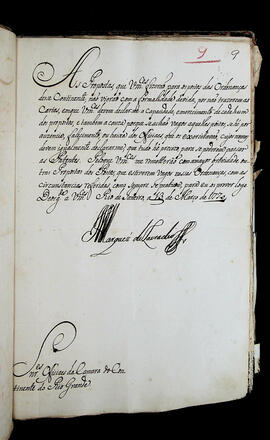 9 9
As Propostas, que Vm.ces fizerão para os postos das Ordenanças
desse Continente, não vierão com a formalidade devida, por não trazerem as
Cartas, em que Vm.ces devem declarar a capacidade, e merecimento de cada hum
dos propostos, e tambem a causa porque se achão vagos aquelles postos; se for por
auzencia, falescimento, ou baixa dos Officiaes, que os exercitavão, cujos nomes
devem igualmente declararme; que tudo he preciso para se poderem passar
as Patentes. Vm.ces me remetterão com a mayor brevidade ou-
tras Propostas dos Postos, que estiverem vagos nessas Ordenanças, com as
circunstancias referidas, como sempre se praticou, para eu os prover logo.
Deos g.e a Vm.ces Rio de Janeiro, a 13 de Março de 1772
Marquez do Lavradio
S.res
Officiaes da Camara do Con-
tinente do Rio Grande.